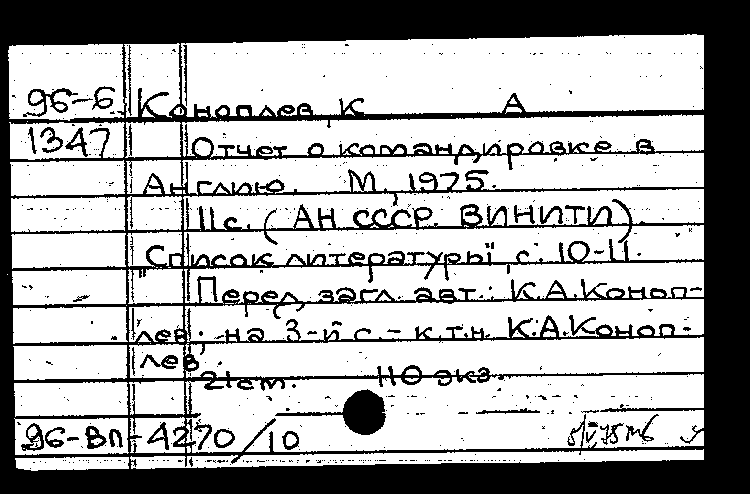 96-6 Коноплев, К А
1347 Отчет о командировке в
Англию. М., 1975.
11с. (АН СССР. ВИНИТИ).
"Список литературы", с. 10-11.
Перед загл. авт.: К.А.Коноп-
лев; на 3-й с.- к.т.н. К.А.Коноп-
лев.
21см. 110 экз.
96-ВП-4270/10